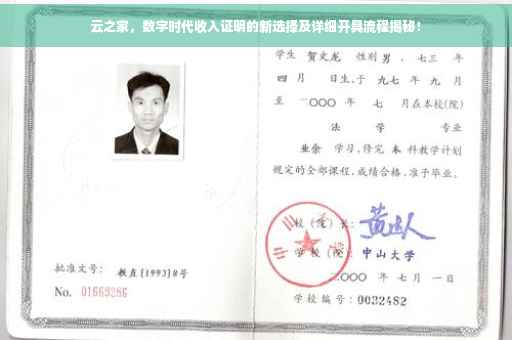 云之家，数字时代收入证明的新选择及详细开具流程揭秘！
学生 贺文龙 性别 男，七三 年
四 月 日生，于 九七 年 九 月
至 二〇〇〇 年 七 月在本校(院)
法 学 专业
业余 学习，修完 本 科教学计划
规定的全部课程，成绩合格，准予毕业。
校（院）长：
学校（院）：中山大学
二〇〇〇 年 七 月 一 日
批准文号： 教直(1993)8号
No. 01669286
学校编号：0032482